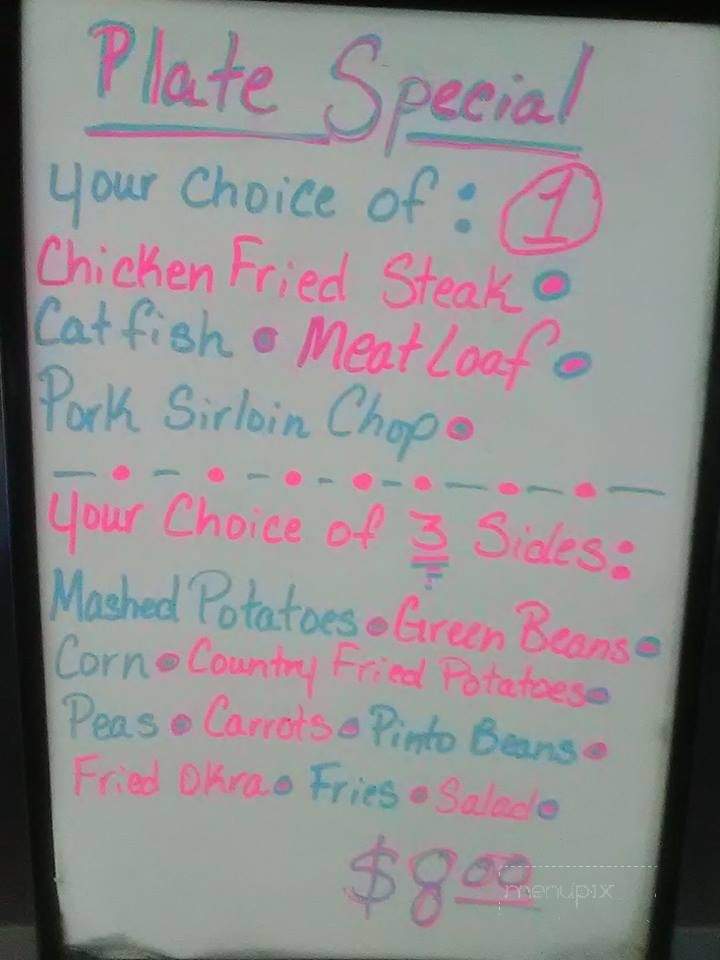 Plate Special
Your Choice of: 1
Chicken Fried Steak •
Catfish • Meat Loaf •
Pork Sirloin Chop •
— • – • – • – • – • — • – • —
Your Choice of 3 Sides:
Mashed Potatoes • Green Beans •
Corn • Country Fried Potatoes •
Peas • Carrots • Pinto Beans •
Fried Okra • Fries • Salad •
$8.00
menupix